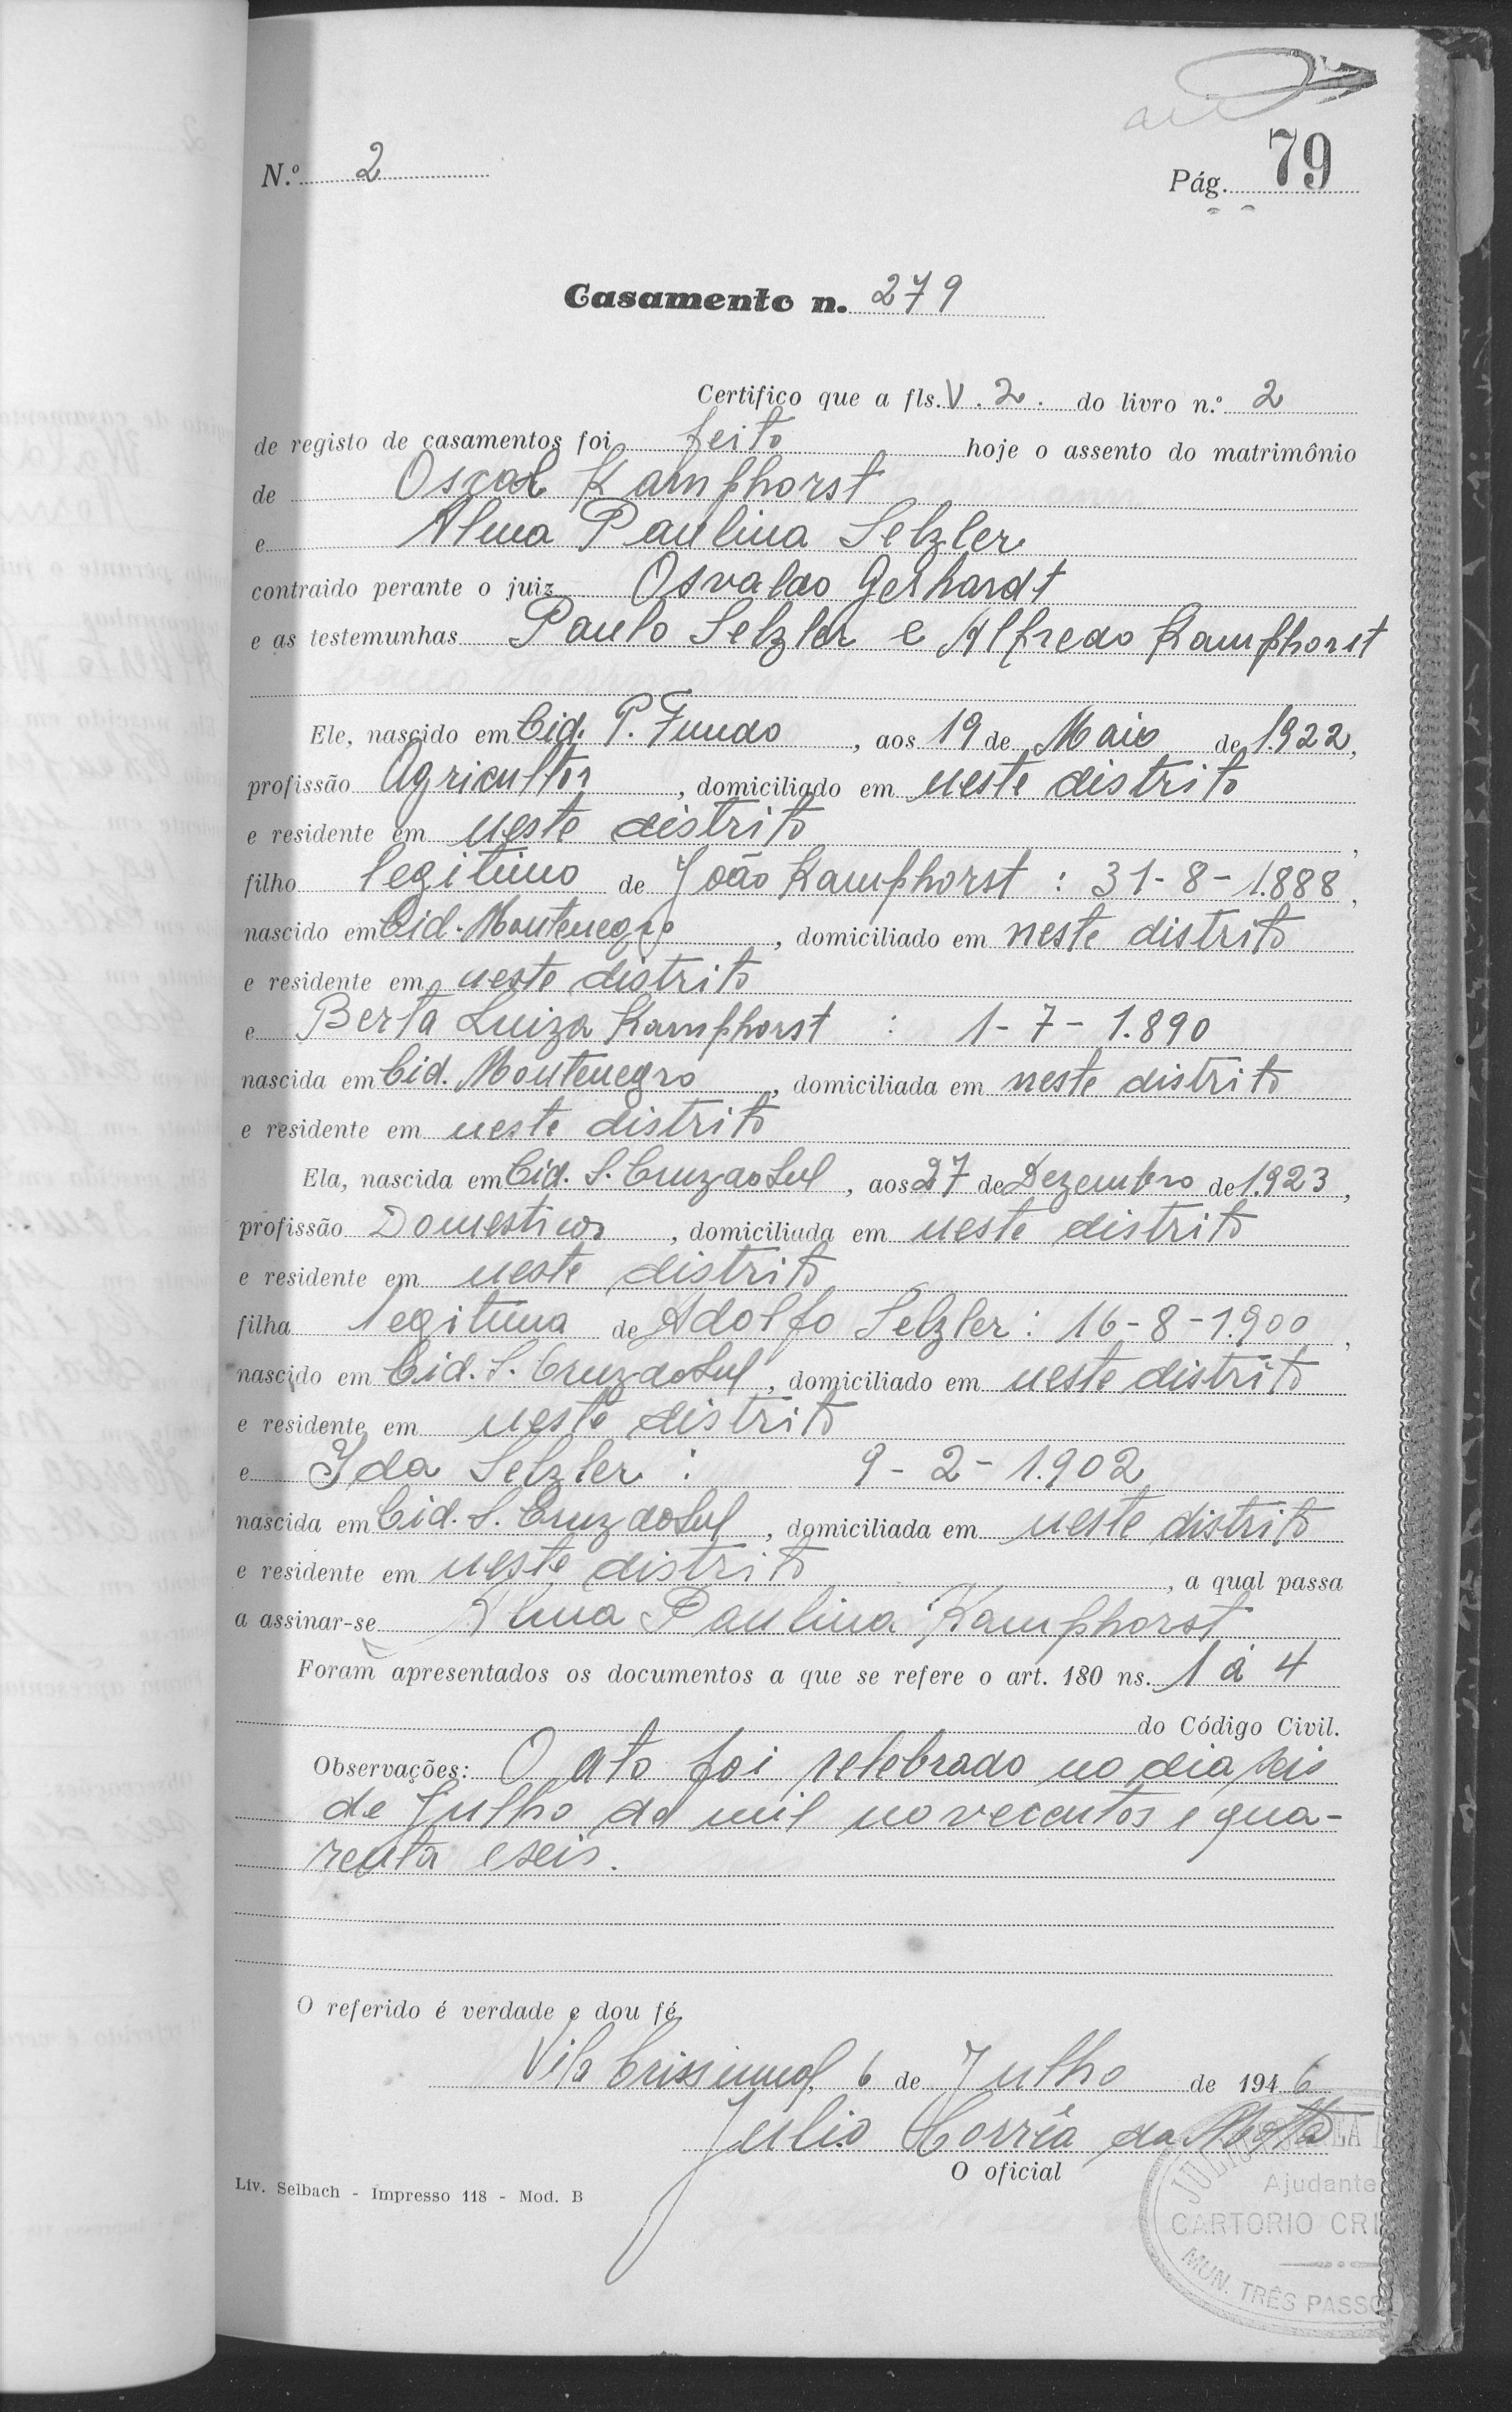 N.º 2
Pág. 79
Casamento n. 279
Certifico que a fls. V. 2. do livro n.º 2
de registo de casamentos foi feito hoje o assento do matrimônio
de Oscar Kamphorst
e Alma Paulina Selzler
contraido perante o juiz Osvaldo Gerhardt
e as testemunhas Paulo Selzler e Alfredo Kamphorst
Ele, nascido em Cid. P. Fundo, aos 19 de Maio de 1.922,
profissão Agricultor, domiciliado em neste distrito
e residente em neste distrito,
filho legitimo de João Kamphorst : 31-8-1.888,
nascido em Cid. Montenegro, domiciliado em neste distrito
e residente em neste distrito
e Berta Luiza Kamphorst : 1-7-1.890
nascida em Cid. Montenegro, domiciliada em neste distrito
e residente em neste distrito
Ela, nascida em Cid. S. Cruz do Sul, aos 27 de Dezembro de 1.923,
profissão Domestica, domiciliada em neste distrito
e residente em neste distrito
filha legitima de Adolfo Selzler : 16-8-1.900,
nascido em Cid. S. Cruz do Sul, domiciliado em neste distrito
e residente em neste distrito
e Ida Selzler : 9-2-1.902
nascida em Cid. S. Cruz do Sul, domiciliada em neste distrito
e residente em neste distrito, a qual passa
a assinar-se Alma Paulina Kamphorst
Foram apresentados os documentos a que se refere o art. 180 ns. 1 á 4
do Código Civil.
Observações: O ato foi selebrado no dia seis
de Julho de mil novecentos e qua-
renta e seis.
O referido é verdade e dou fé.
Vila Crissiumal, 6 de Julho de 1946
Julio Corrêa da Motta
O oficial
Liv. Selbach - Impresso 118 - Mod. B
Ajudante
CARTORIO CRI
MUN. TRÊS PASSO